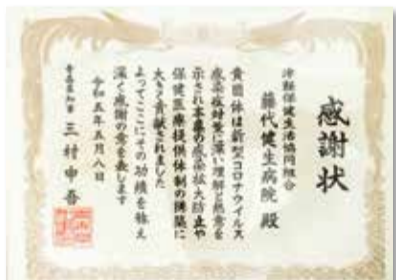 感謝状
津軽保健生活協同組合
藤代健生病院 殿
貴団体は新型コロナウイルス
感染症対策に深い理解と熱意を
示され本県の感染拡大防止や
保健医療提供体制の構築に
大きく貢献されました
よってここにその功績を称え
深く感謝の意を表します
令和五年五月八日
青森県知事 三村申吾